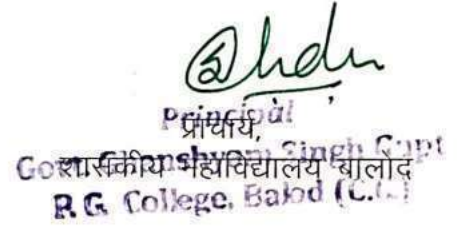 Principal
प्राचार्य,
Govt. Ghanshyam Singh Gupt
शासकीय महाविद्यालय बालोद
P.G. College, Balod (C.G.)